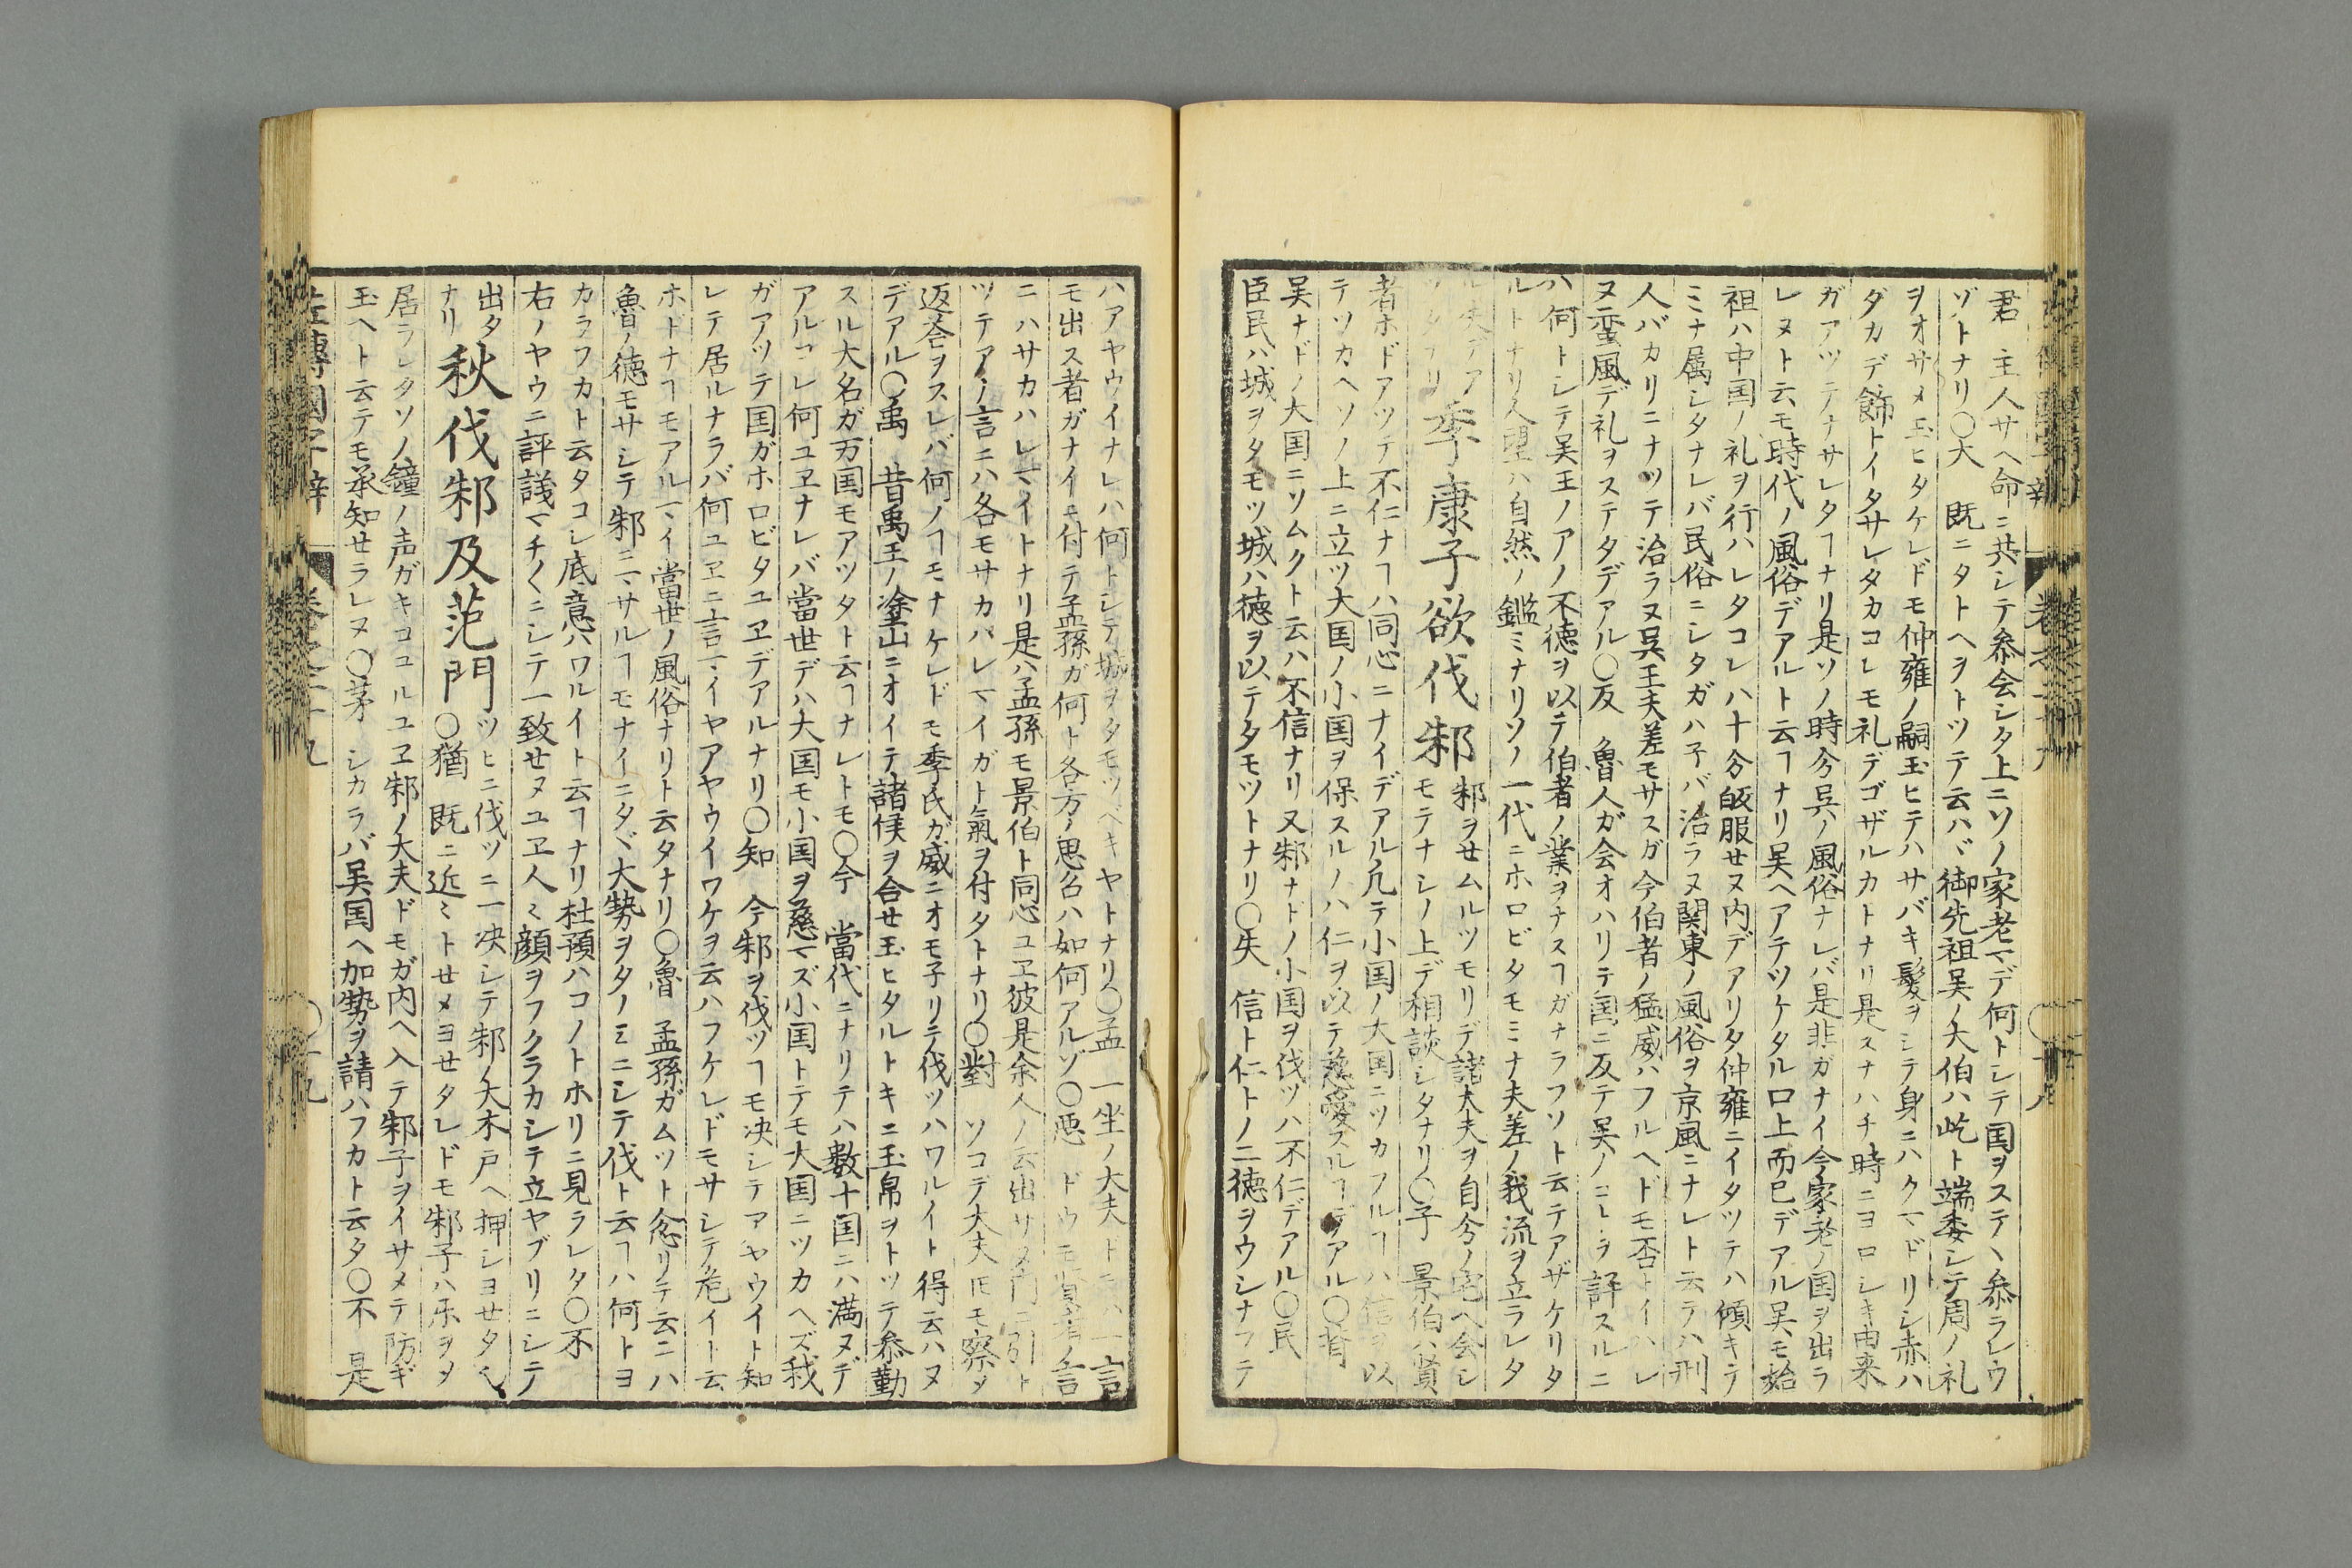 君　主人サヘ命ニ共シテ参会シタ上ニソノ家老マデ何トシテ国ヲステヽ参ラレウ
ゾトナリ〇大　既ニタトヘヲトツテ云ハヾ御先祖呉ノ大伯ハ屹ト端委シテ周ノ礼
ヲオサメ玉ヒタケレドモ仲雍ノ嗣玉ヒテハサバキ髪ヲシテ身ニハクマドリシ赤ハ
ダカデ飾トイタサレタカコレモ礼デゴザルカトナリ是スナハチ時ニヨロシキ由来
ガアツテナサレタヿナリ是ソノ時分呉ノ風俗ナレバ是非ガナイ今家老ノ国ヲ出ラ
レヌト云モ時代ノ風俗デアルト云ヿナリ呉ヘアテツケタル口上而已デアル呉モ始
祖ハ中国ノ礼ヲ行ハレタコレハ十分皈服セヌ内デアリタ仲雍ニイタツテハ傾キテ
ミナ属シタナレバ民俗ニシタガハ子バ治ラヌ関東ノ風俗ヲ京風ニナレト云ラハ刑
人バカリニナツテ治ラヌ呉王夫差モサスガ今伯者ノ猛威ハフルヘドモ否トイハレ
ヌ蛮風デ礼ヲステタデアル〇反　魯人ガ会オハリテ国ニ反テ呉ノコレヲ評スルニ
ハ何トシテ呉王ノアノ不徳ヲ以テ伯者ノ業ヲナスヿガナラフソト云テアザケリタ
ルトナリ人望ハ自然ノ鑑ミナリソノ一代ニホロビタモミナ夫差ノ我流ヲ立ラレタ
季康子欲伐邾　邾ヲせムルツモリデ諸大夫ヲ自分ノ宅ヘ会シ
モテナシノ上デ相談シタナリ〇子　景伯ハ賢
者ホドアツテ不仁ナヿハ同心ニナイデアル凡テ小国ノ大国ニツカフルヿハ信ヲ以
テツカヘソノ上ニ立ツ大国ノ小国ヲ保スルノハ仁ヲ以テ慈愛スルヿデアル〇背
呉ナドノ大国ニソムクト云ハ不信ナリ又邾ナドノ小国ヲ伐ツハ不仁デアル〇民
臣民ハ城ヲタモツ城ハ徳ヲ以テタモツトナリ〇失　信ト仁トノ二徳ヲウシナフテ
ハアヤウイナレハ何トシテ城ヲタモツベキヤトナリ〇孟　一坐ノ大夫トモハ一言
モ出ス者ガナイニ付テ孟孫ガ何ト各方ノ思召ハ如何アルゾ〇悪　ドウモ賢者ノ言
ニハサカハレマイトナリ是ハ孟孫モ景伯ト同心ユヱ彼是余人ノ云出サヌ内ニ引ト
ツテアノ言ニハ各モサカハレマイガト氣ヲ付タトナリ〇對　ソコデ大夫𪜈モ察メ
返答ヲスレバ何ノヿモナケレドモ季氏ガ威ニオモ子リテ伐ツハワルイト得云ハヌ
デアル〇禹　昔禹王ノ塗山ニオイテ諸候ヲ合せ玉ヒタルトキニ玉帛ヲトツテ参勤
スル大名ガ万国モアツタト云ヿナレトモ〇今　當代ニナリテハ數十国ニハ満ヌデ
アルコレ何ユヱナレバ當世デハ大国モ小国ヲ慈マズ小国トテモ大国ニツカヘズ我
ガアツテ国ガホロビタユヱデアルナリ〇知　今邾ヲ伐ツヿモ决シテアヤウイト知
レテ居ルナラバ何ユヱニ言マイヤアヤウイワケヲ云ハフケレドモサシテ危イト云
ホドナヿモアルマイ當世ノ風俗ナリト云タナリ〇魯　孟孫ガムツト忿リテ云ニハ
魯ノ徳モサシテ邾ニマサルヿモナイニタヾ大勢ヲタノミニシテ伐ト云ヿハ何トヨ
カラフカト云タコレ底意ハワルイト云ヿナリ杜預ハコノトホリニ見ラレタ〇不
右ノヤウニ評議マチ〱ニシテ一致せヌユヱ人ミ顔ヲフクラカシテ立ヤブリニシテ
出タ
ナリ　秋伐邾及范門　ツヒニ伐ツニ一决シテ邾ノ大木戸ヘ押シヨせタ
〇猶　既ニ近ミトせメヨせタレドモ邾子ハ乐ヲメ
居ラレタソノ鐘ノ声ガキコユルユヱ邾ノ大夫ドモガ内ヘ入テ邾子ヲイサメテ防ギ
玉ヘト云テモ承知せラレヌ〇茅　シカラバ呉国ヘ加勢ヲ請ハフカト云タ〇不　是
左傳國字辯　卷之十九　〇十九